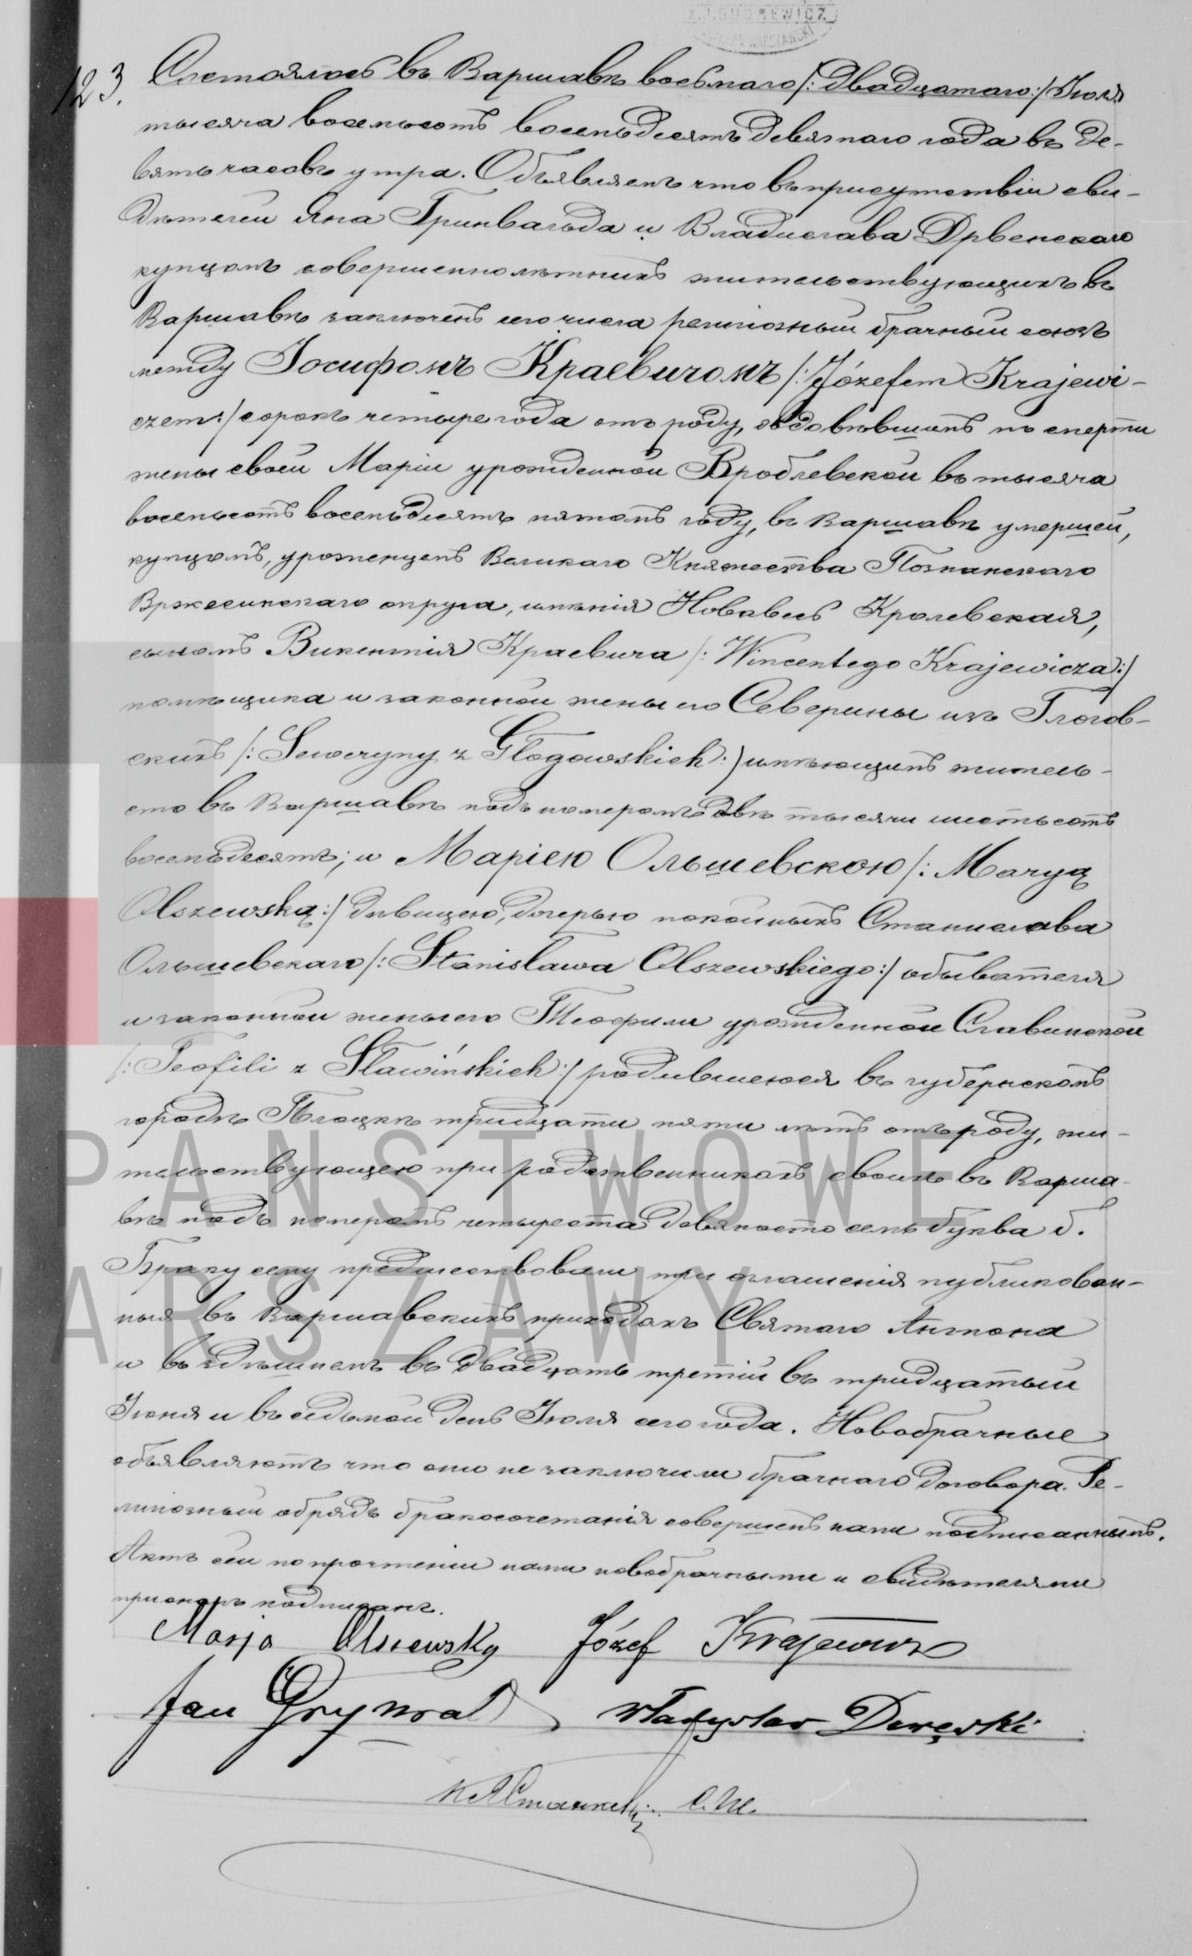 123.
Состоялось въ Варшавѣ восьмаго /:двадцатаго:/ Іюля
тысяча восемьсотъ восемьдесятъ девятаго года въ де-
вять часовъ утра. Объявляемъ что въ присутствіи сви-
дѣтелей Яна Гринвальда и Владислава Дрвенскаго
купцомъ совершеннолѣтнихъ жительствующихъ въ
Варшавѣ заключенъ сего числа религіозный брачный союзъ
между Іосифомъ Краевичомъ /:Józefem Krajewi-
czem:/ сорокъ четыре года отъ роду, овдовѣвшимъ по смерти
жены своей Маріи урожденной Вроблевской въ тысяча
восемьсотъ восемьдесятъ пятомъ году, въ Варшавѣ умершей,
купцомъ, уроженцемъ Великаго Княжества Познанскаго
Вржесинскаго округа, имѣнія Новавесь Кролевская,
сыномъ Викентія Краевича /:Wincentego Krajewicza:/
помѣщика и законной жены его Северины изъ Глогов-
скихъ /:Seweryny z Głogowskich:/ имѣющимъ житель-
ство въ Варшавѣ подъ номеромъ двѣ тысячи шестьсотъ
восемьдесятъ; и Маріею Ольшевскою /:Maryą
Olszewską:/ дѣвицею, дочерью покойныхъ Станислава
Ольшевскаго /:Stanisława Olszewskiego:/ обывателя
и законной жены его Теофили урожденной Славинской
/:Teofili z Sławińskich:/ родившеюся въ губернскомъ
городѣ Плоцкѣ тридцати пяти лѣтъ отъ роду, жи-
тельствующею при родственникахъ своихъ въ Варша-
вѣ подъ номеромъ четыреста девяносто семь буква б.
Браку сему предшествовали три оглашенія публикован-
ныя въ Варшавскихъ приходахъ Святаго Антона
и въ здѣшнемъ въ двадцать третій въ тридцатый
Іюня и въ седьмой день Іюля сего года. Новобрачные
объявляютъ что они не заключили брачнаго договора. Ре-
лигіозный обрядъ бракосочетанія совершенъ нами подписаннымъ.
Актъ сей по прочтеніи нами новобрачными и свидѣтелями
при ономъ подписанъ.
Marja Olszewska Józef Krajewicz
Jan Grynwald Władysław Drwęski
PAŃSTWOWE
WARSZAWY